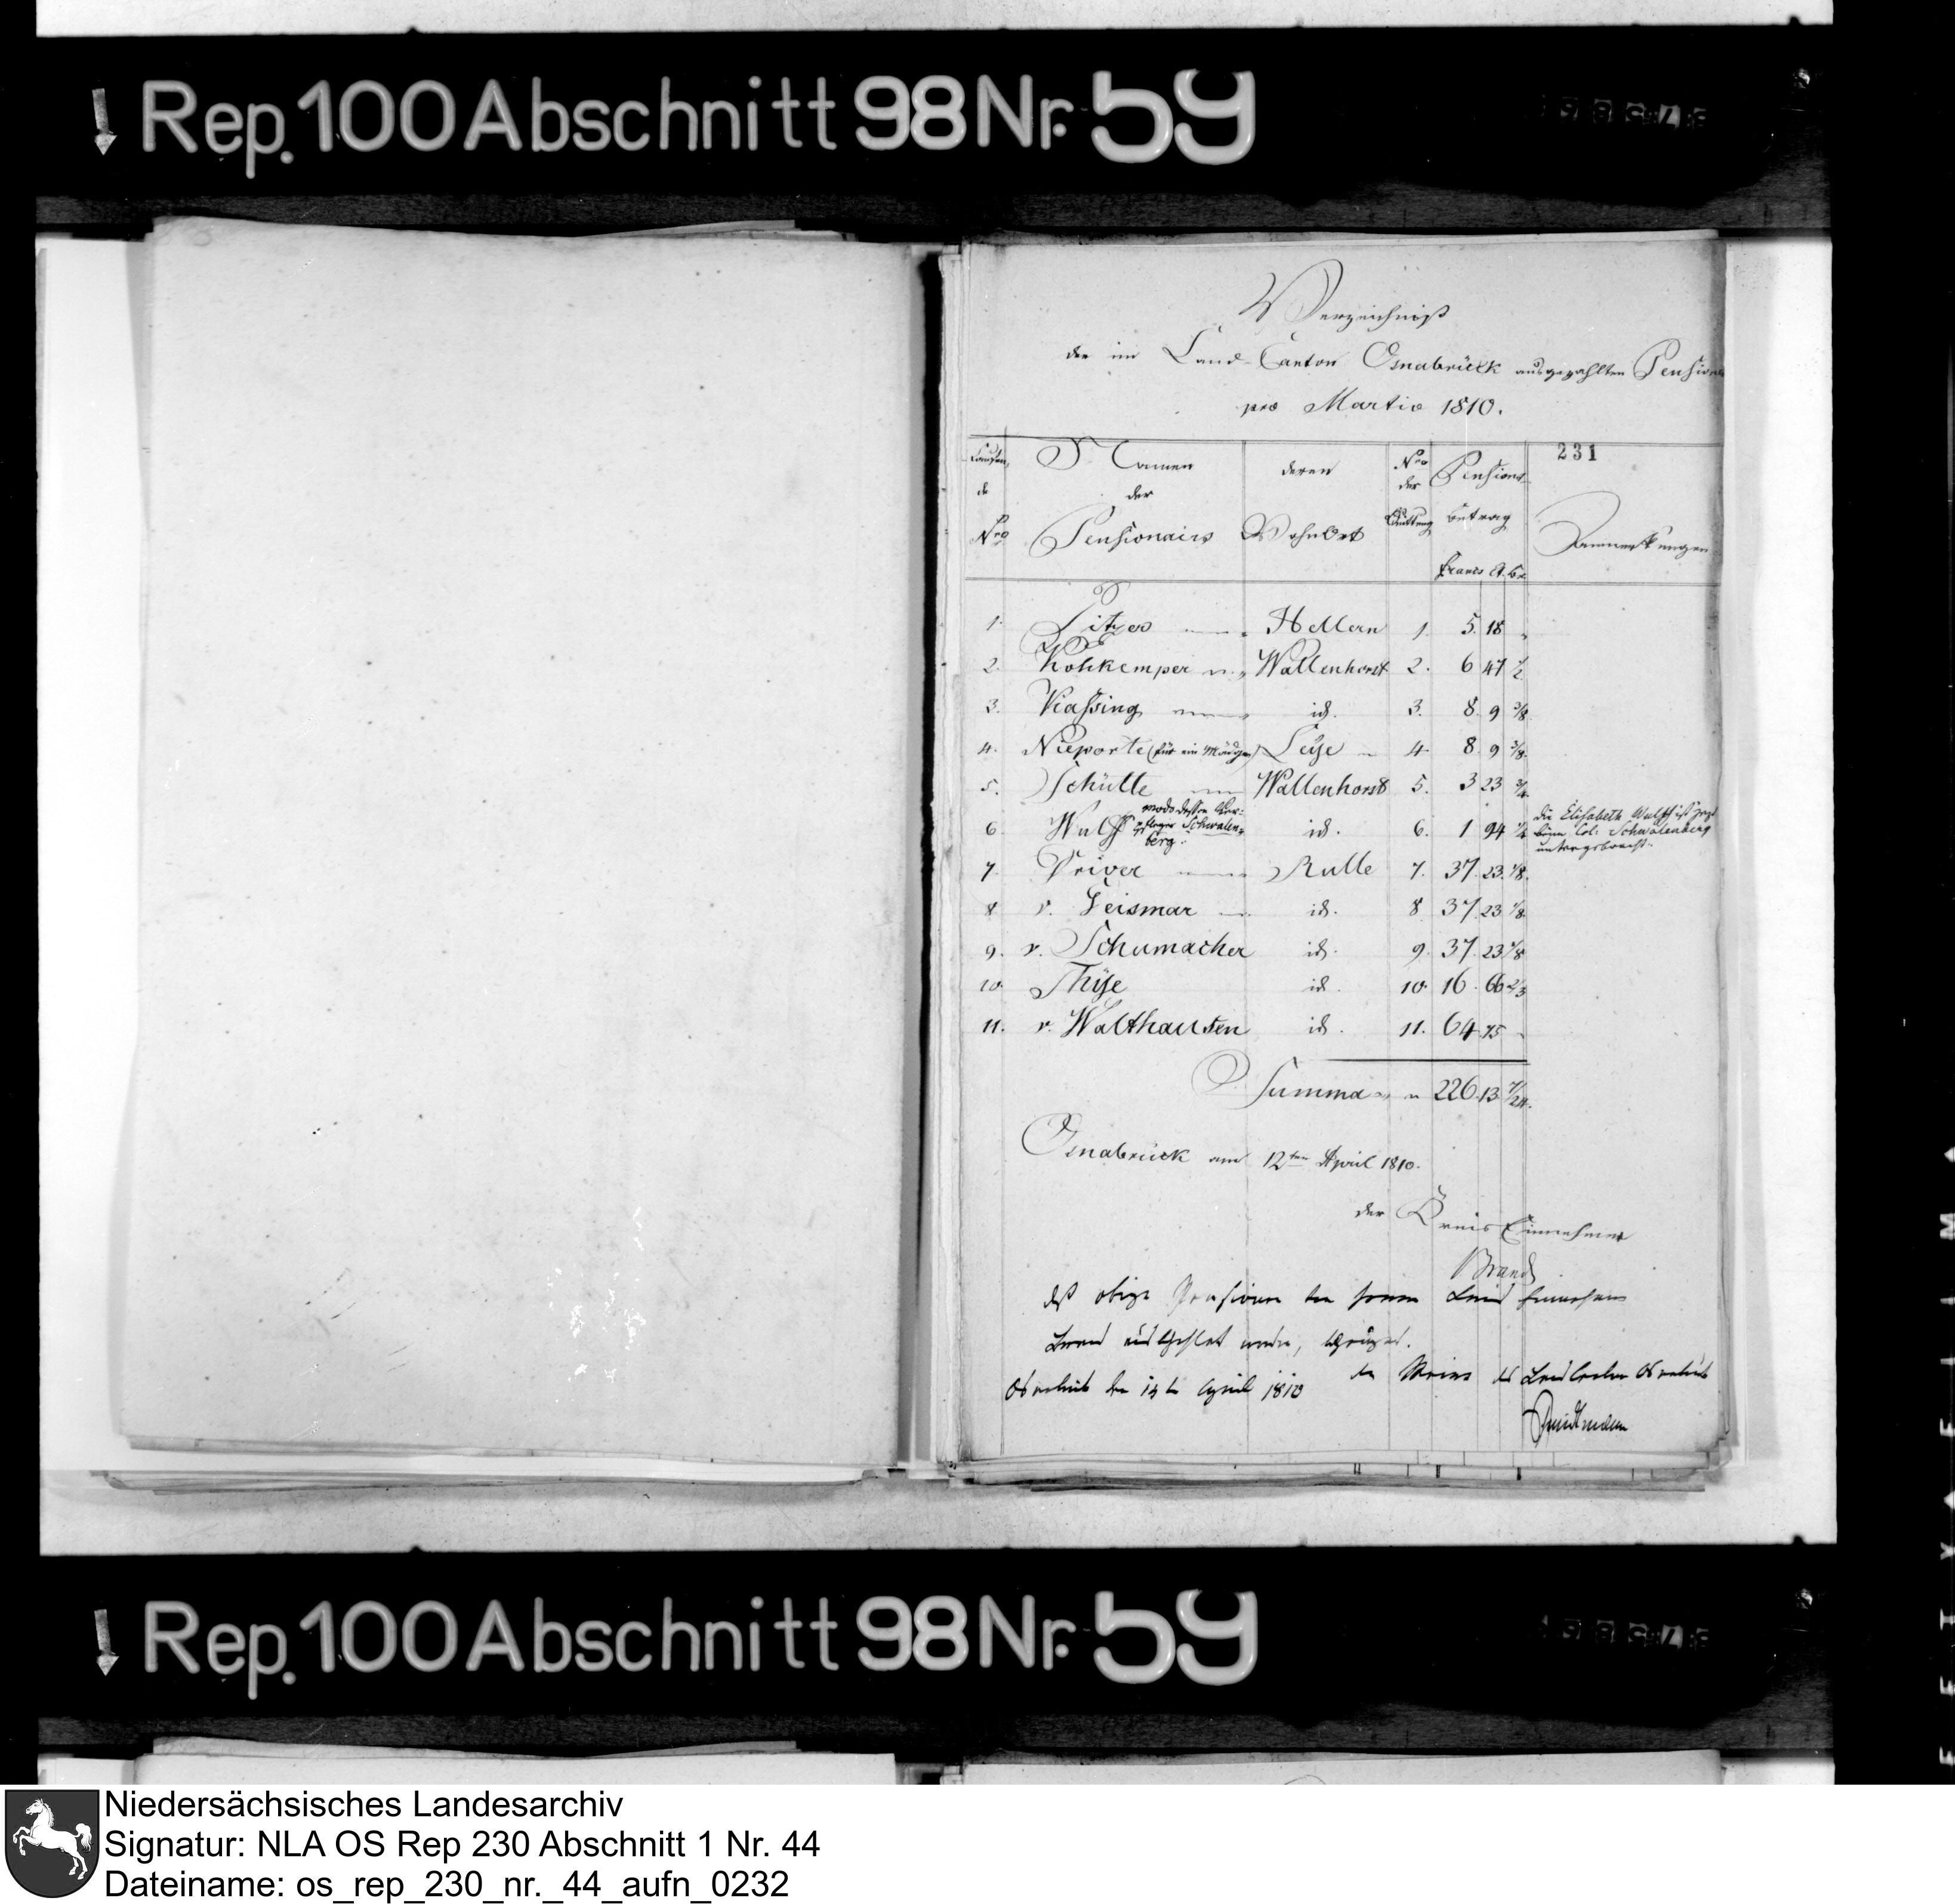 Rep. 100 Abschnitt 98 Nr. 59
Verzeichniß
der im Land-Canton Osnabrück ausgezahlten Pensionen
pro Martio 1810.
231
Laufende Nro
Namen der Pensionairs
deren Wohnort
Nro der Quittung
Pensions betrag
Francs Ct. Br.
Anmerkungen
1. Hellern 1. 5. 18 "
2. Kohkemper Wallenhorst 2. 6 47 1/2
3. Kassing id. 3. 8. 9 3/8
4. Nieporte (für ein Mädgen) Leye 4 8. 9 3/8
5. Schütte Wallenhorst 5. 3 23 3/4
6. Wulff modo dessen Ver-
pfleger Schwalen-
berg. id. 6. 1 94 1/4 die Elisabeth Wulff ist jezt
beim Col. Schwalenberg
untergebracht.
7. Driver Rulle 7. 37. 23. 1/8.
8 v. Geismar id. 8 37. 23 1/8
9. v. Schumacher id. 9. 37. 23 1/8
10. Thÿe id. 10. 16. 66 2/3
11. v. Walthausen id. 11. 64. 75 -
Summa 226. 13 7/24.
Osnabrück am 12ten April 1810.
der Kreis Einnehmer
Brand
daß obige Pensionen von Herrn
Brand ausbezahlt worden, bezeuget.
Osnabrück den April 1810 der Maire des Land Canton Osnabrück
Rep. 100 Abschnitt 98 Nr. 59
Niedersächsisches Landesarchiv
Signatur: NLA OS Rep 230 Abschnitt 1 Nr. 44
Dateiname: os_rep_230_nr._44_aufn_0232